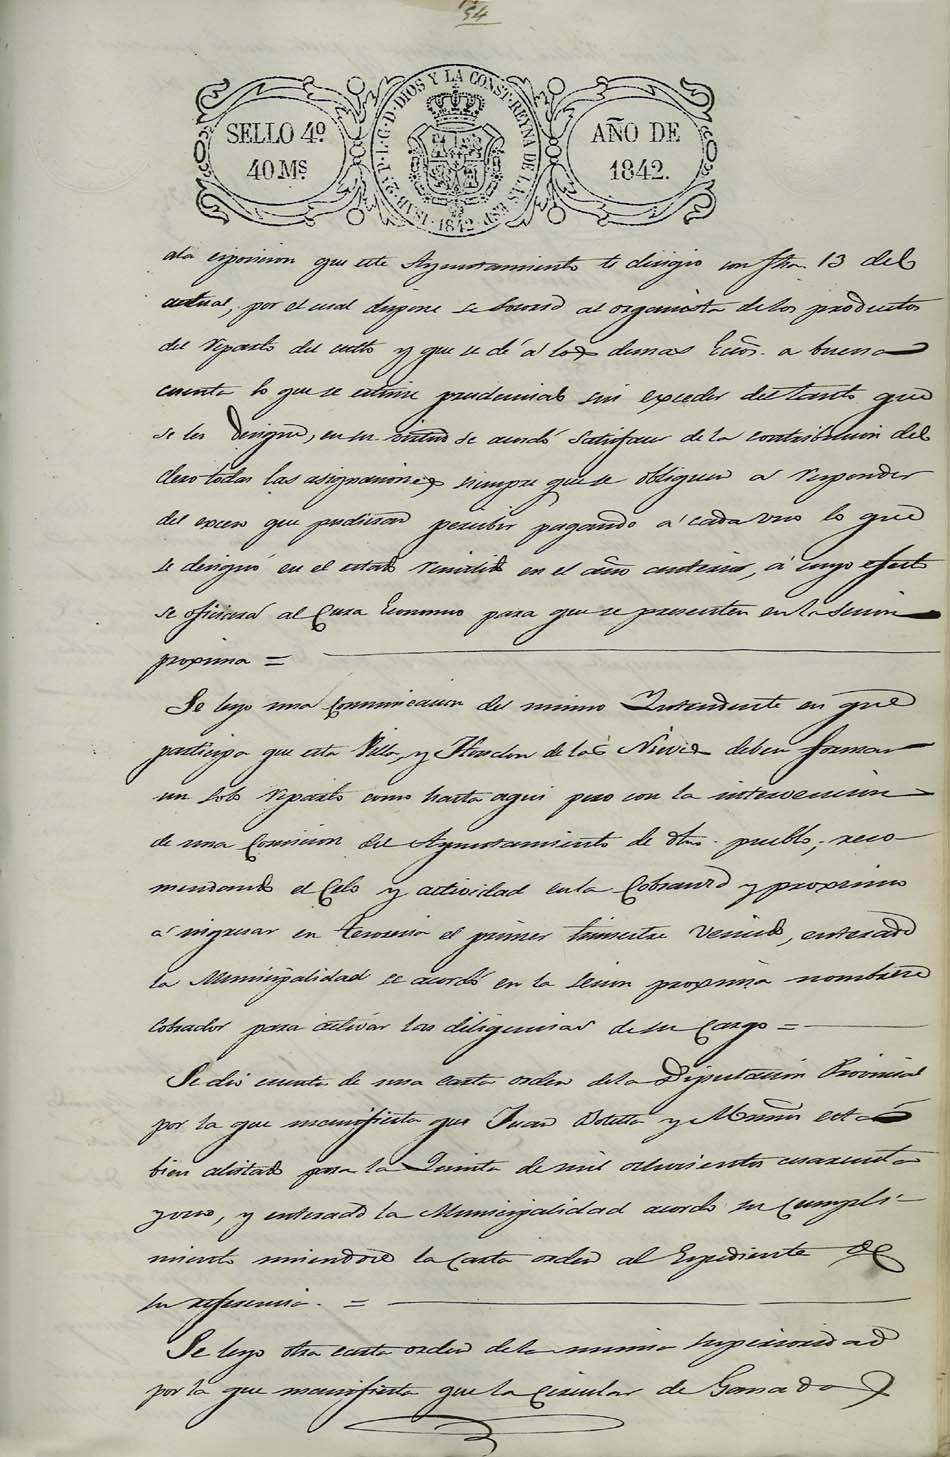 54
SELLO 4º
40 Mˢ
ISAB. 2ª P. L. G. D. DIOS Y LA CONST. REYNA DE LAS ESP. 1842
AÑO DE
1842.
ala esposicion que este Ayuntamiento le dirigio con fha. 13 del
actual, por el cual dispone se socorra al organista de los productos
del reparto del culto y que se dé á los demas Ecos. a buena
cuenta lo que se estime prudencial sin exceder del tanto que
se les designe, en su virtud se acordó satisfacer de la contribucion del
clero todas las asignaciones siempre que se obliguen á responder
del exceso que pudieran percibir pagando á cada uno lo que
se designó en el estado remitido en el año anterior, á cuyo efecto
se oficiará al Cura Economo para que se presenten en la sesion
proxima =
Se leyo una Comunicacion del mismo Intendente en que
participa que esta Villa, y Hondon de las Nieves deben formar
un solo reparto como hasta aqui pero con la intervencion
de una Comision del Ayuntamiento de dho. pueblo, reco-
mendando el Celo y actividad en la Cobranza y proximo
á ingresar en tesoreria el primer trimestre vencido, enterada
la Municipalidad se acordó en la sesion proxima nombrar
Cobrador para activar las diligencias de su Cargo =
Se dió cuenta de una carta orden de la Diputacion Provincial
por la que manifiesta que Juan Botella y Muños está
bien alistado para la Quinta de mil ochocientos cuarenta
y uno, y enterada la Municipalidad acordó su Cumpli-
miento uniendose la Carta orden al Expediente de
su referencia. =
Se leyo otra carta orden de la misma Superioridad
por la que manifiesta que la Circular de Ganados